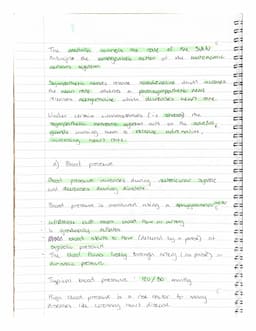 The medulla controls the rate of the SAN through the antagonistic action of the autonomic nervous system
Sympathetic nerves release noradrenaline which increases the heart rate whereas a parasympathetic nerve releases acetylcholine which decreases heart rate.
Under certain circumstances (i.e. stress) the sympathetic nervous system acts on the adrenal glands causing them to release adrenaline, increasing heart rate.
d) Blood pressure
Blood pressure increases during ventricular systole and decreases during diastole
Blood pressure is measured using a
blood starts to flow (detected by a pulse) at systolic pressure
The blood flows freely through artery (no pulse) in diastolic pressure
Typical blood pressure 120/80 mmHg
High blood pressure is a risk factor to many diseases like coronary heart disease.